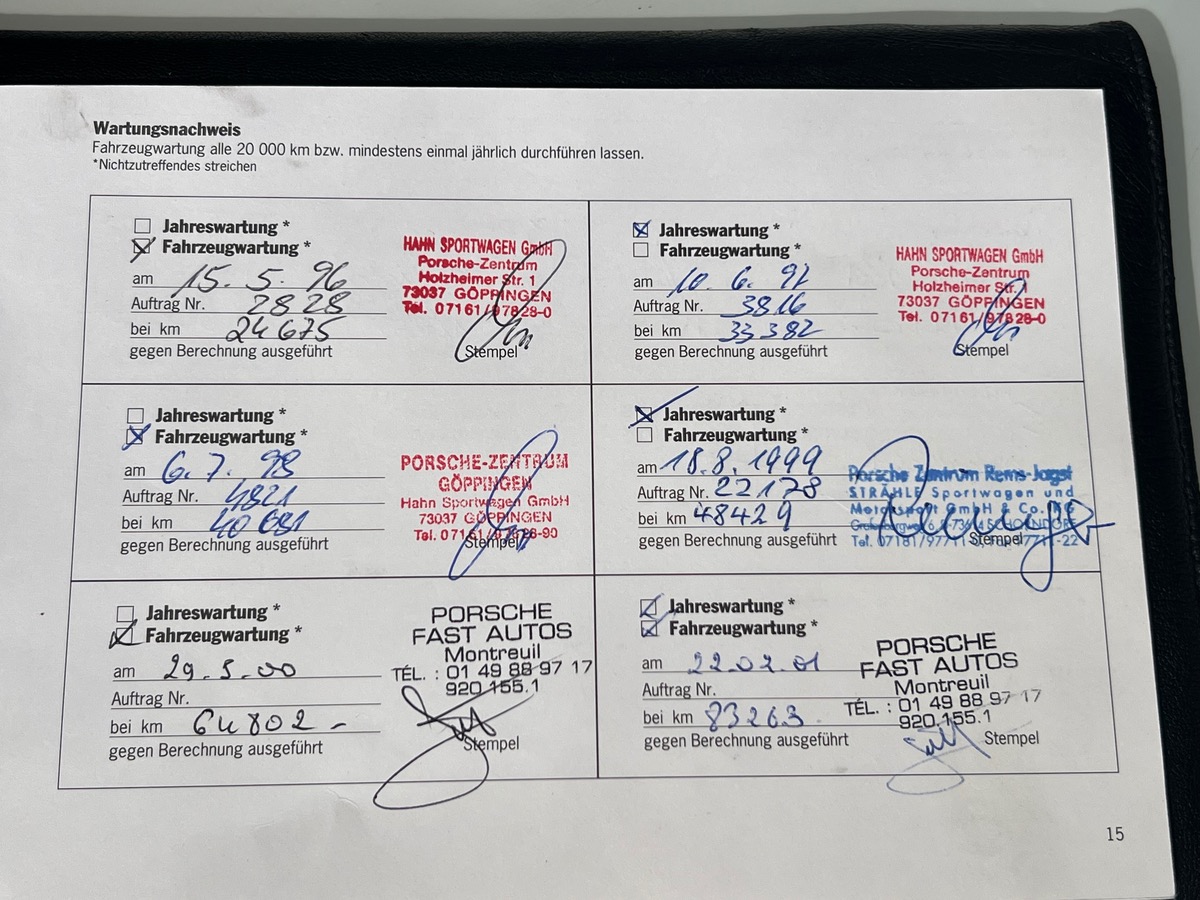 Wartungsnachweis
Fahrzeugwartung alle 20 000 km bzw. mindestens einmal jährlich durchführen lassen.
*Nichtzutreffendes streichen
Jahreswartung *
Fahrzeugwartung *
am 15. 5. 96
Auftrag Nr. 2828
bei km 24675
gegen Berechnung ausgeführt
HAHN SPORTWAGEN GmbH
Porsche-Zentrum
Holzheimer Str. 1
73037 GÖPPINGEN
Tel. 07161/97828-0
Stempel
Jahreswartung *
Fahrzeugwartung *
am 10. 6. 97
Auftrag Nr. 3816
bei km 33382
gegen Berechnung ausgeführt
HAHN SPORTWAGEN GmbH
Porsche-Zentrum
Holzheimer Str. 1
73037 GÖPPINGEN
Tel. 07161/97828-0
Stempel
Jahreswartung *
Fahrzeugwartung *
am 6. 7. 98
Auftrag Nr. 4821
bei km 40681
gegen Berechnung ausgeführt
PORSCHE-ZENTRUM
GÖPPINGEN
Hahn Sportwagen GmbH
73037 GÖPPINGEN
Tel. 07161/97828-90
Stempel
Jahreswartung *
Fahrzeugwartung *
am 18. 8. 1999
Auftrag Nr. 22178
bei km 48429
gegen Berechnung ausgeführt
Porsche Zentrum Rems-Jagst
STRÄHLE Sportwagen und
Motorsport GmbH & Co. KG
SCHORNDORF
Tel. 07181/9771
Stempel
Jahreswartung *
Fahrzeugwartung *
am 29.5.00
Auftrag Nr.
bei km 64802 -
gegen Berechnung ausgeführt
PORSCHE
FAST AUTOS
Montreuil
TÉL. : 01 49 88 97 17
920 155.1
Stempel
Jahreswartung *
Fahrzeugwartung *
am 22.02.01
Auftrag Nr.
bei km 83263
gegen Berechnung ausgeführt
PORSCHE
FAST AUTOS
Montreuil
TÉL. : 01 49 88 97 17
920 155.1
Stempel
15